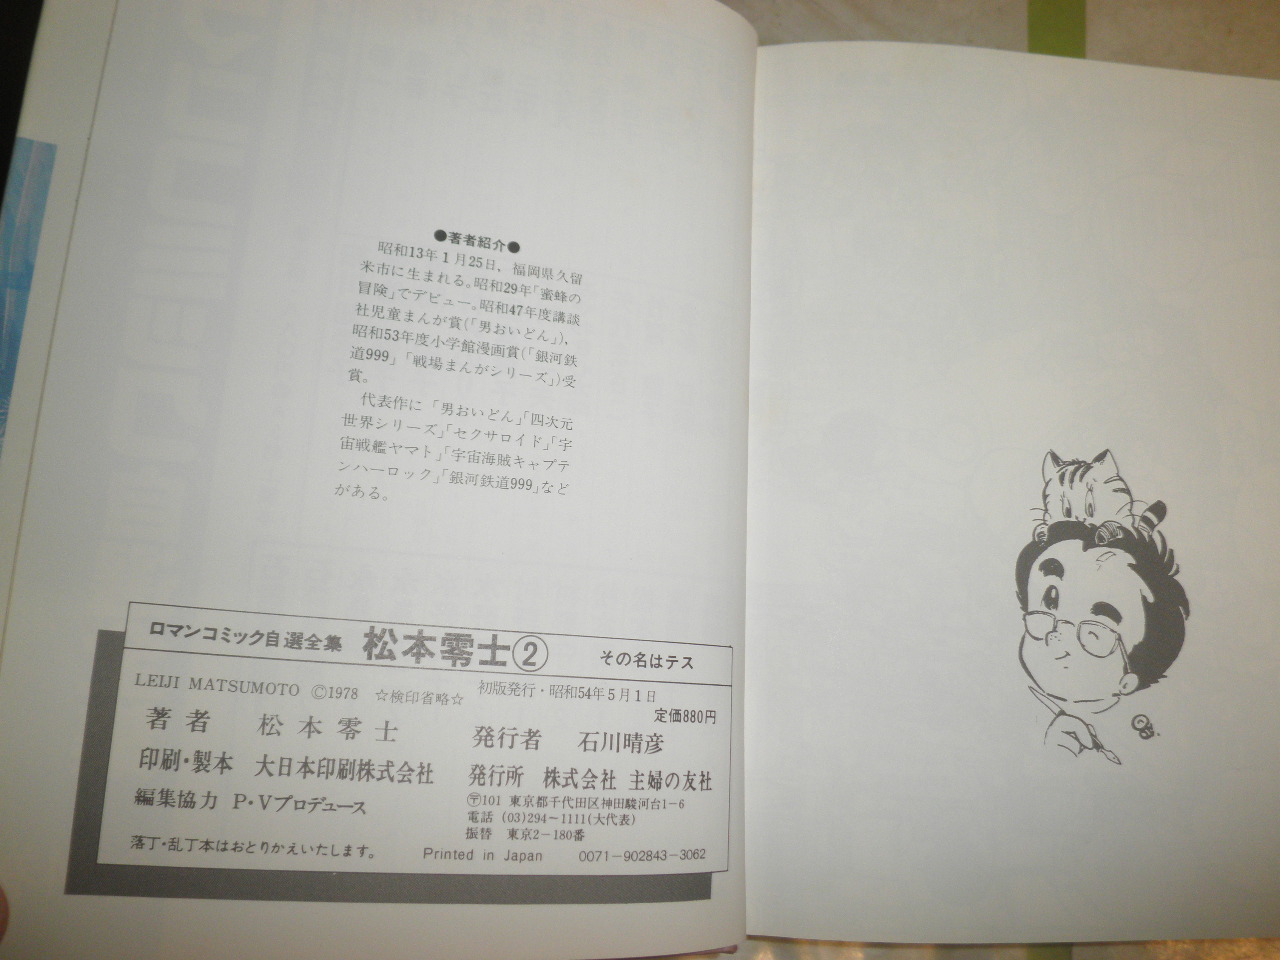 ●著者紹介●
昭和13年1月25日，福岡県久留
米市に生まれる。昭和29年「蜜蜂の
冒険」でデビュー。昭和47年度講談
社児童まんが賞（「男おいどん」），
昭和53年度小学館漫画賞（「銀河鉄
道999」「戦場まんがシリーズ」）受
賞。
代表作に「男おいどん」「四次元
世界シリーズ」「セクサロイド」「宇
宙戦艦ヤマト」「宇宙海賊キャプテ
ンハーロック」「銀河鉄道999」など
がある。
ロマンコミック自選全集 松本零士② その名はテス
LEIJI MATSUMOTO ©1978 ☆検印省略☆ 初版発行・昭和54年5月1日
定価880円
著者 松本零士 発行者 石川晴彦
印刷・製本 大日本印刷株式会社 発行所 株式会社 主婦の友社
編集協力 P・Vプロデュース 〒101 東京都千代田区神田駿河台1−6
電話 (03)294〜1111(大代表)
振替 東京2−180番
落丁・乱丁本はおとりかえいたします。 Printed in Japan 0071−902843−3062